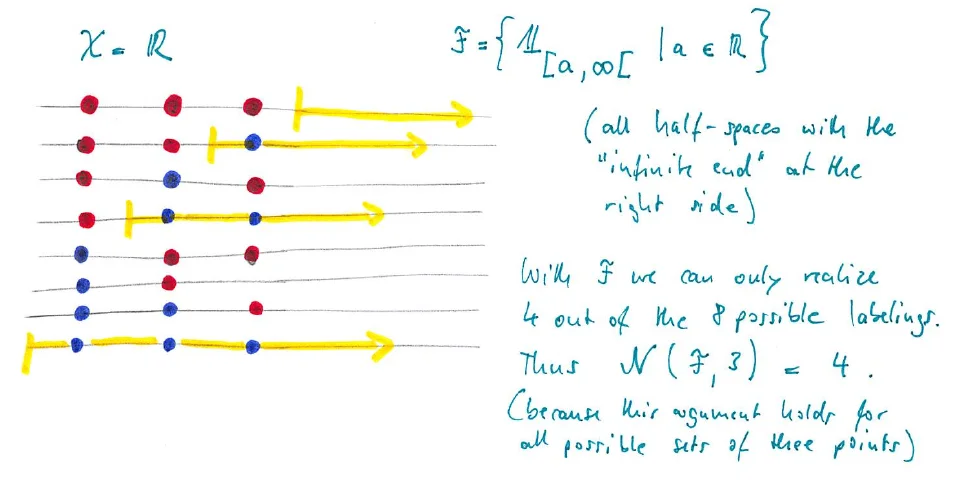 X = ℝ
F = { 𝟙[a,∞[ | a ∈ ℝ }
(all half-spaces with the
"infinite end" at the
right side)
With F we can only realize
4 out of the 8 possible labelings.
Thus N(F,3) = 4.
(because this argument holds for
all possible sets of three points)